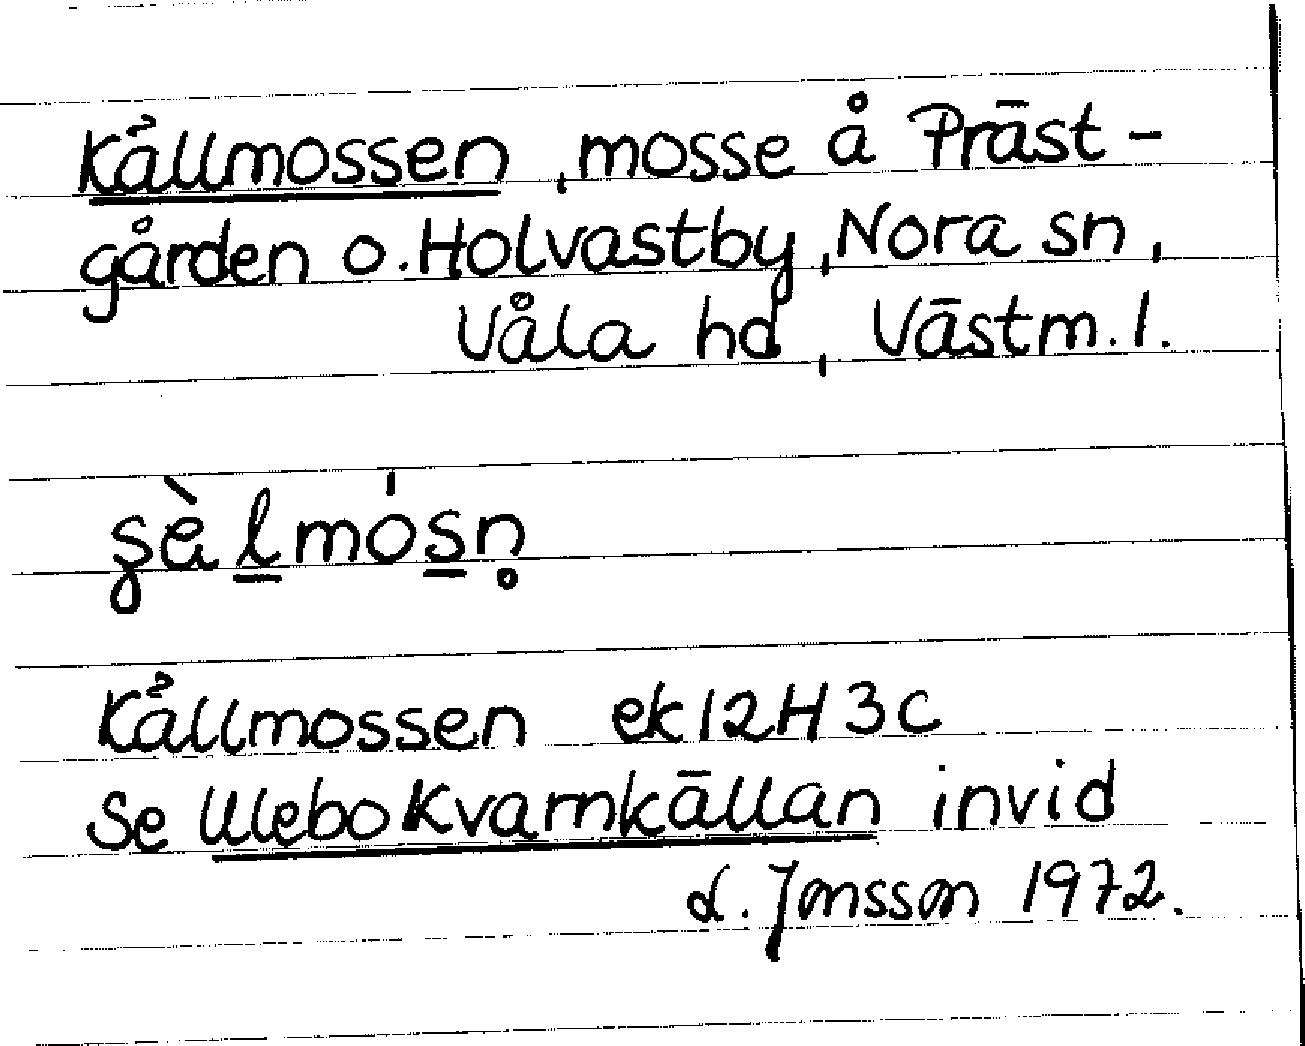 Källmossen, mosse å Präst-
gården o. Holvastby, Nora sn,
Våla hd, Västm. l.
Källmossen ek 12H 3c
Se Ulebo Kvarnkällan invid
L. Jonsson 1972.